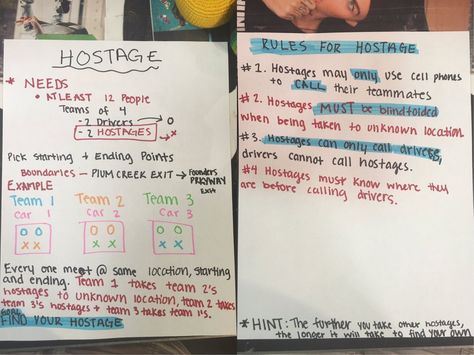 HOSTAGE
* NEEDS
• ATLEAST 12 People
Teams of 4
- 2 Drivers → O
- 2 HOSTAGES → X
Pick Starting + Ending Points
Boundaries – PLUM CREEK EXIT → Founders
PRKYWAY
Exit
EXAMPLE
Team 1 Team 2 Team 3
Car 1 Car 2 Car 3
O O O O O O
X X X X X X
Every one meet @ same location, starting
and ending. Team 1 takes team 2's
hostages to unknown location, team 2 takes
team 3's hostages + team 3 takes team 1's.
GOAL
FIND YOUR HOSTAGE
RULES FOR HOSTAGE
#1. Hostages may only use cell phones
to CALL their teammates
#2. Hostages MUST be blindfolded
when being taken to unknown location
#3. Hostages can only call drivers,
drivers cannot call hostages.
#4 Hostages must know where they
are before calling drivers.
* HINT: The further you take other hostages,
the longer it will take to find your own